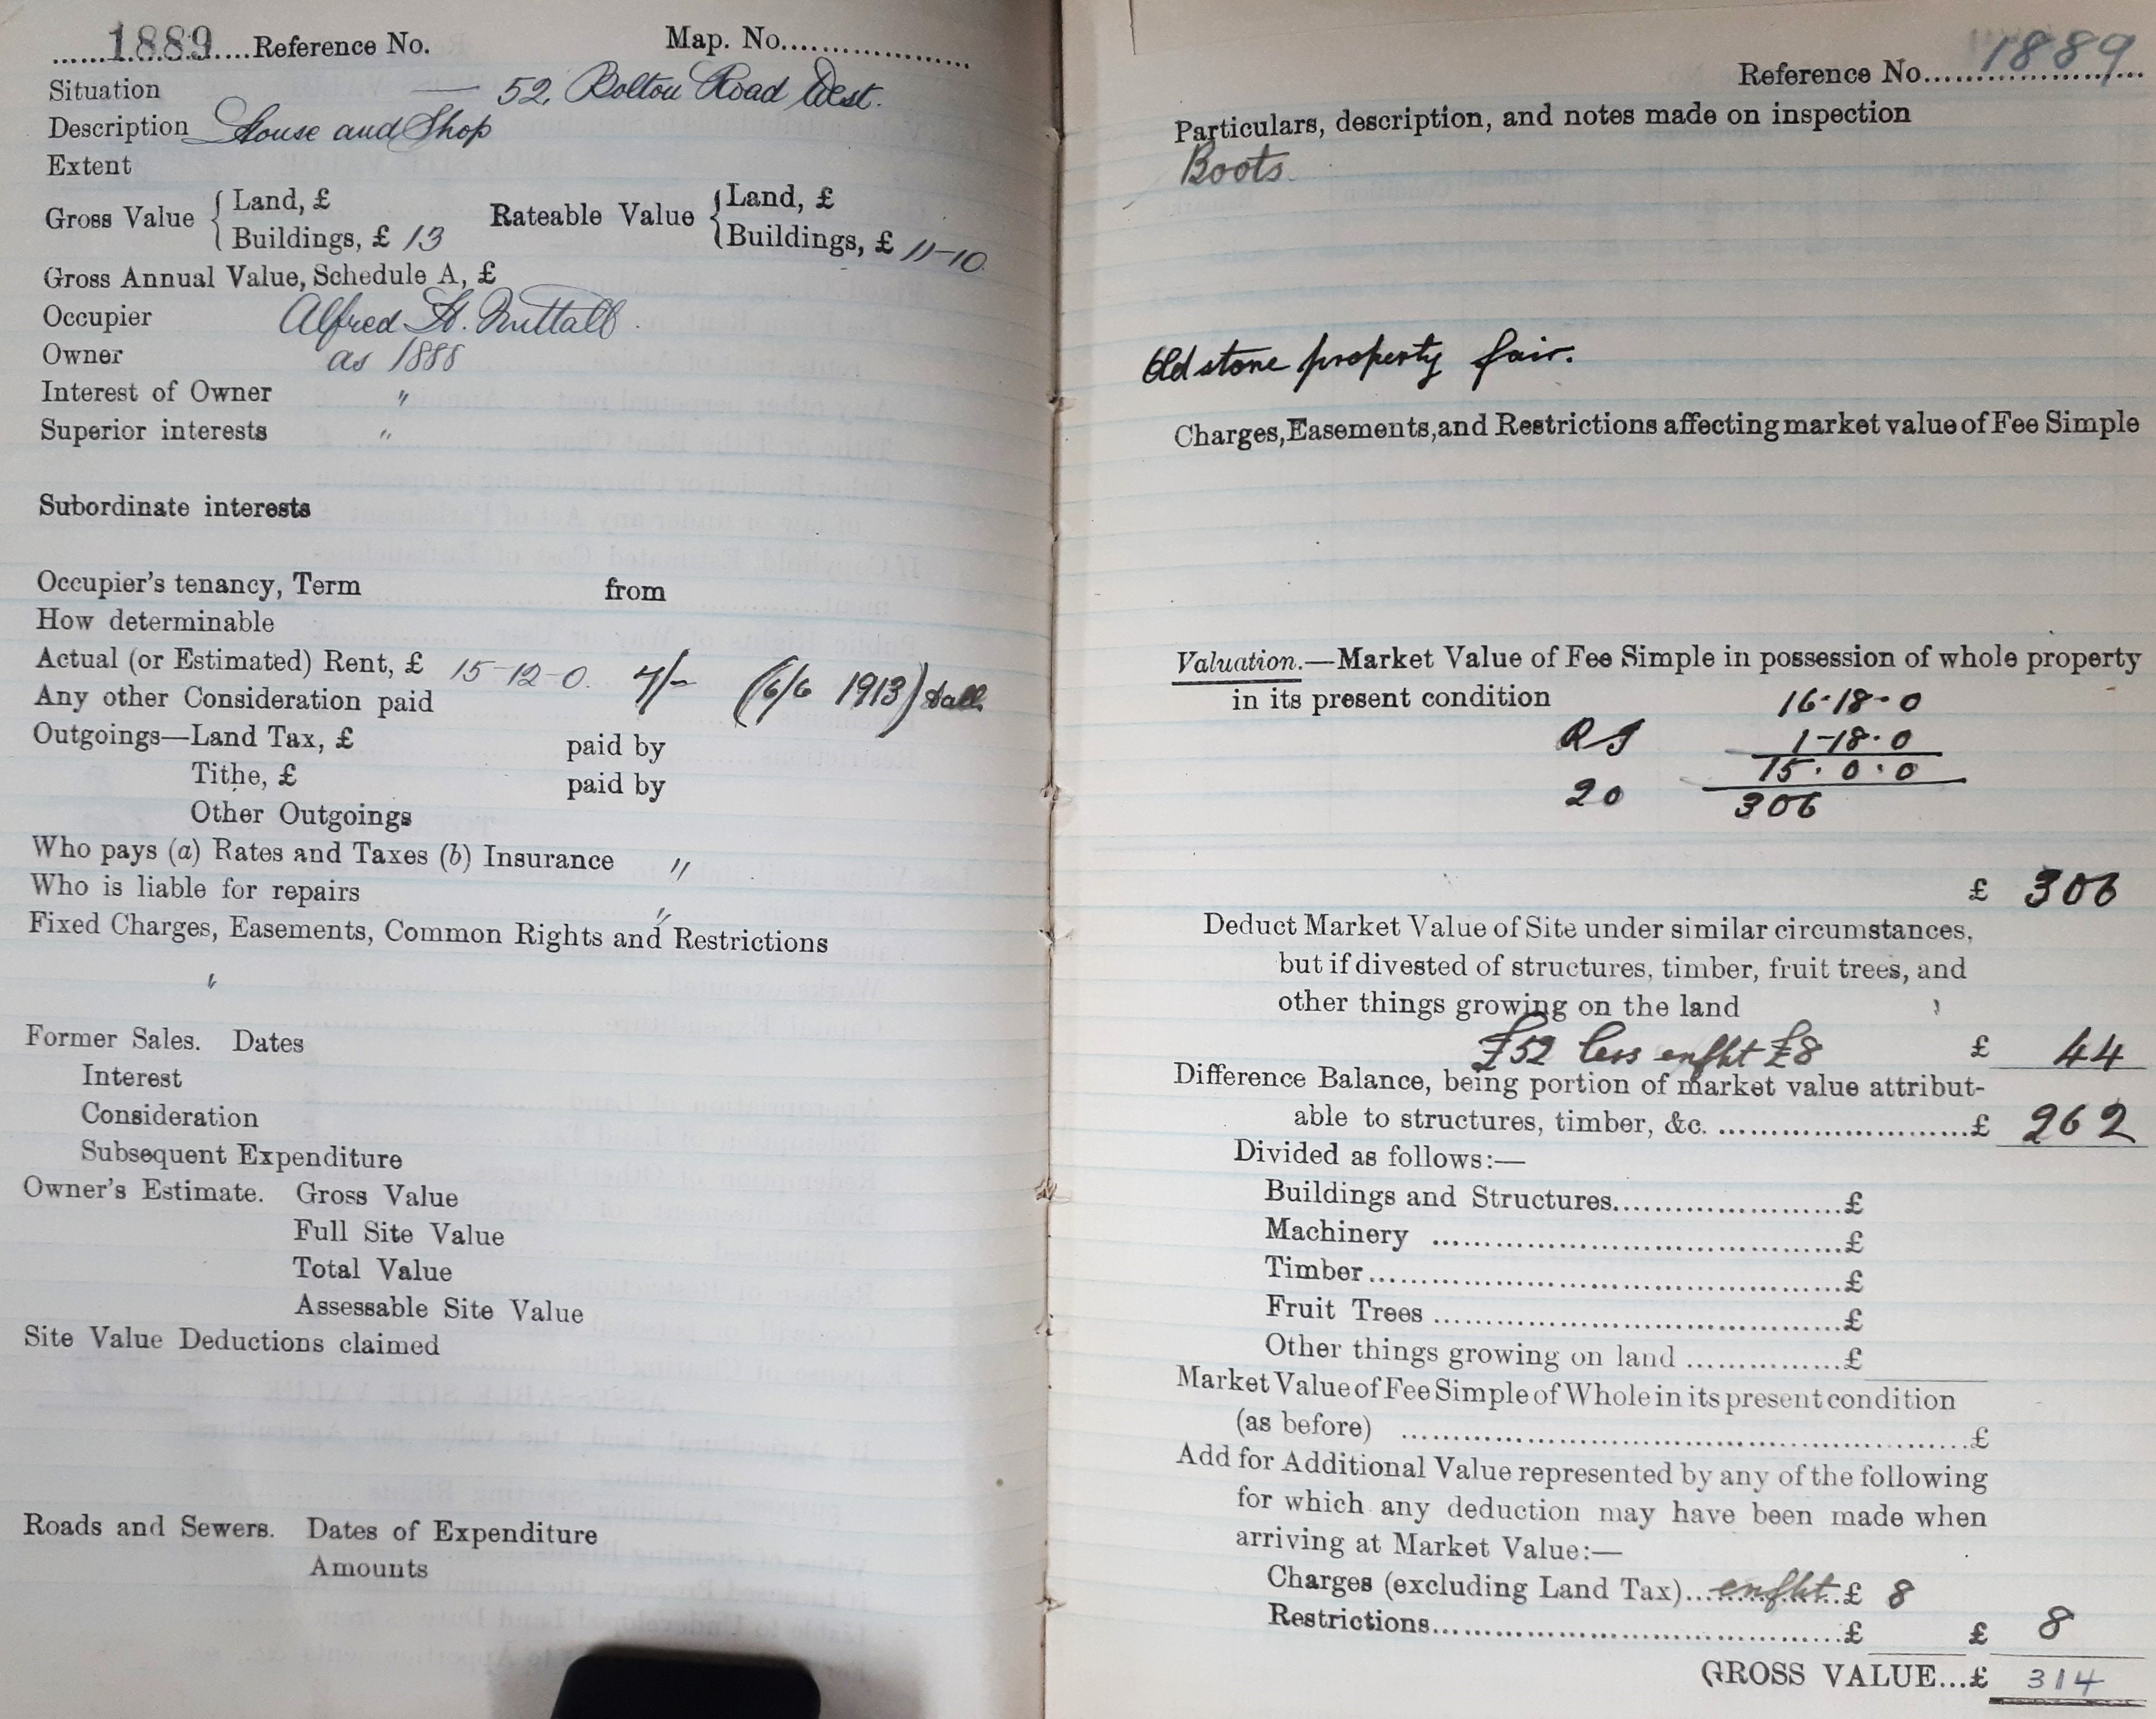 1889 Reference No. Map. No.
Situation — 52, Bolton Road West.
Description House and Shop
Extent
Gross Value { Land, £ Rateable Value { Land, £
Buildings, £ 13 Buildings, £ 11-10
Gross Annual Value, Schedule A, £
Occupier Alfred H. Nuttall
Owner as 1888
Interest of Owner "
Superior interests "
Subordinate interests
Occupier's tenancy, Term from
How determinable
Actual (or Estimated) Rent, £ 15-12-0. (6/6 1913)
Any other Consideration paid
Outgoings—Land Tax, £ paid by
Tithe, £ paid by
Other Outgoings
Who pays (a) Rates and Taxes (b) Insurance "
Who is liable for repairs "
Fixed Charges, Easements, Common Rights and Restrictions
"
Former Sales. Dates
Interest
Consideration
Subsequent Expenditure
Owner's Estimate. Gross Value
Full Site Value
Total Value
Assessable Site Value
Site Value Deductions claimed
Roads and Sewers. Dates of Expenditure
Amounts
Reference No. 1889
Particulars, description, and notes made on inspection
Boots.
Old stone property fair.
Charges, Easements, and Restrictions affecting market value of Fee Simple
Valuation.—Market Value of Fee Simple in possession of whole property
in its present condition
16-18-0
1-18-0
15.0.0
20 306
£ 306
Deduct Market Value of Site under similar circumstances,
but if divested of structures, timber, fruit trees, and
other things growing on the land
£52 less enfht £8 £ 44
Difference Balance, being portion of market value attribut-
able to structures, timber, &c. £ 262
Divided as follows:—
Buildings and Structures £
Machinery £
Timber £
Fruit Trees £
Other things growing on land £
Market Value of Fee Simple of Whole in its present condition
(as before) £
Add for Additional Value represented by any of the following
for which any deduction may have been made when
arriving at Market Value:—
Charges (excluding Land Tax) enfht £ 8
Restrictions £ £ 8
GROSS VALUE...£ 314